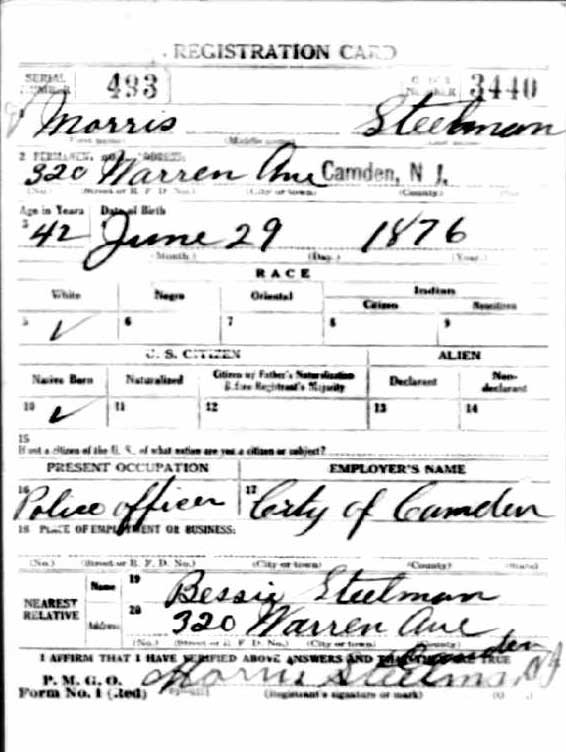 REGISTRATION CARD
SERIAL NUMBER 493 ORDER NUMBER 3440
1 Morris Steelman
(First name) (Middle name) (Last name)
2 PERMANENT HOME ADDRESS:
320 Warren Ave Camden, N J.
(No.) (Street or R. F. D. No.) (City or town) (County) (State)
Age in Years Date of Birth
3 42 June 29 1876
(Month.) (Day.) (Year.)
RACE
White Negro Oriental Indian
Citizen Noncitizen
5 ✓ 6 7 8 9
U. S. CITIZEN ALIEN
Native Born Naturalized Citizen by Father's Naturalization Before Registrant's Majority Declarant Non-declarant
10 ✓ 11 12 13 14
15
If not a citizen of the U. S., of what nation are you a citizen or subject?
PRESENT OCCUPATION EMPLOYER'S NAME
16 Police officer 17 City of Camden
18 PLACE OF EMPLOYMENT OR BUSINESS:
(No.) (Street or R. F. D. No.) (City or town) (County) (State)
NEAREST RELATIVE Name 19 Bessie Steelman
Address 20 320 Warren Ave
(No.) (Street or R. F. D. No.) (City or town) (County)
Camden NJ
I AFFIRM THAT I HAVE VERIFIED ABOVE ANSWERS AND THAT THEY ARE TRUE
P. M. G. O.
Form No. 1 (Red) Morris Steelman
(Registrant's signature or mark)